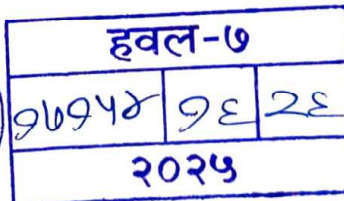 हवल-७
१७१५४ १६ २६
२०२५